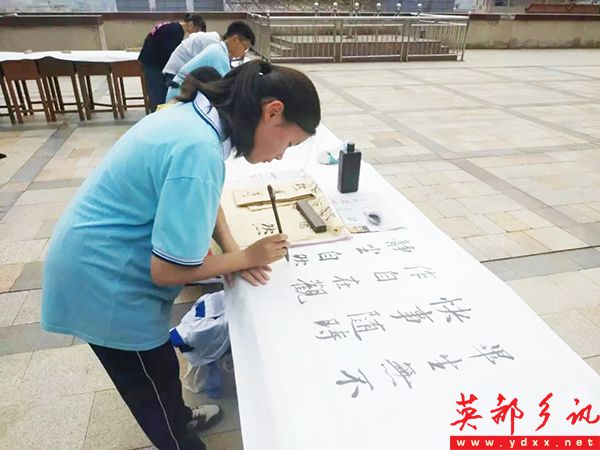 畢生無不
快事隨時
作自在觀
靜坐自然
英都乡讯
www.ydxx.net